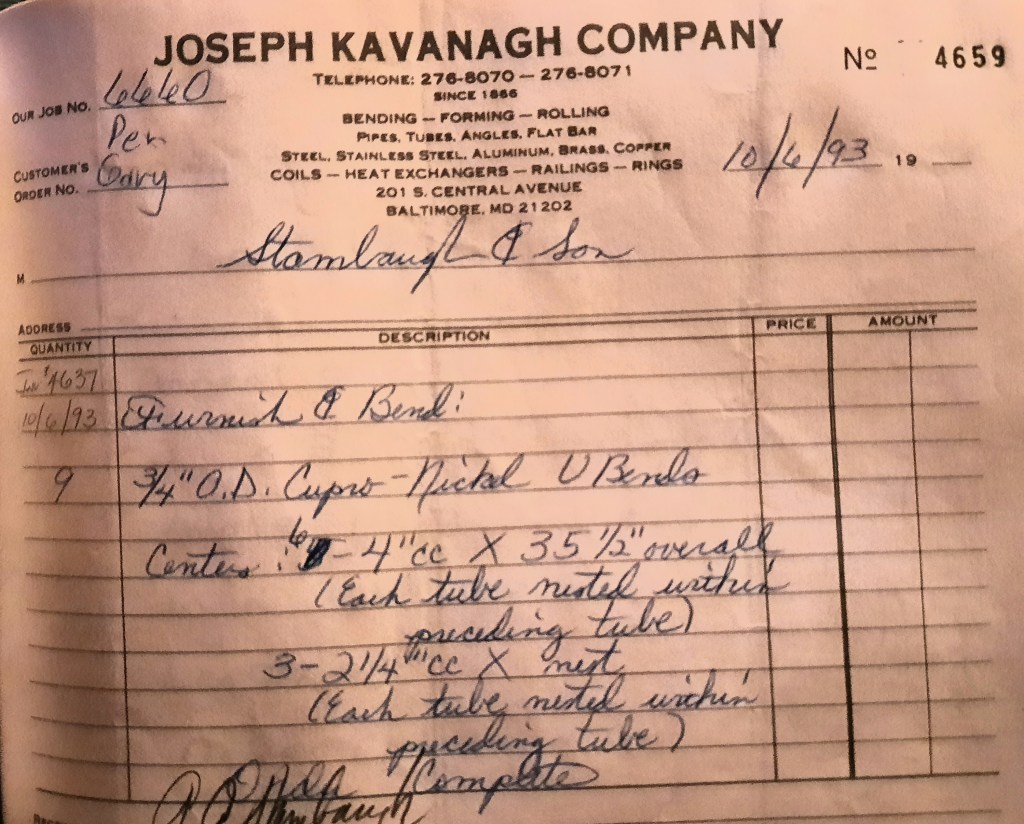 JOSEPH KAVANAGH COMPANY
Nº 4659
TELEPHONE: 276-8070 — 276-8071
SINCE 1866
OUR JOB NO. 6660
BENDING — FORMING — ROLLING
PIPES, TUBES, ANGLES, FLAT BAR
STEEL, STAINLESS STEEL, ALUMINUM, BRASS, COPPER
COILS — HEAT EXCHANGERS — RAILINGS — RINGS
201 S. CENTRAL AVENUE
BALTIMORE, MD 21202
Per
CUSTOMER'S
ORDER NO. Gary
10/6/93 19
M Stambaugh & Son
ADDRESS
QUANTITY DESCRIPTION PRICE AMOUNT
Inv # 4637
10/6/93 Furnish & Bend:
9 3/4" O.D. Cupro-Nickel U Bends
Centers: 6 - 4" cc X 35 1/2" overall
(Each tube nested within
preceding tube)
3 - 2 1/4" cc X nest
(Each tube nested within
preceding tube)
Order Complete
Stambaugh